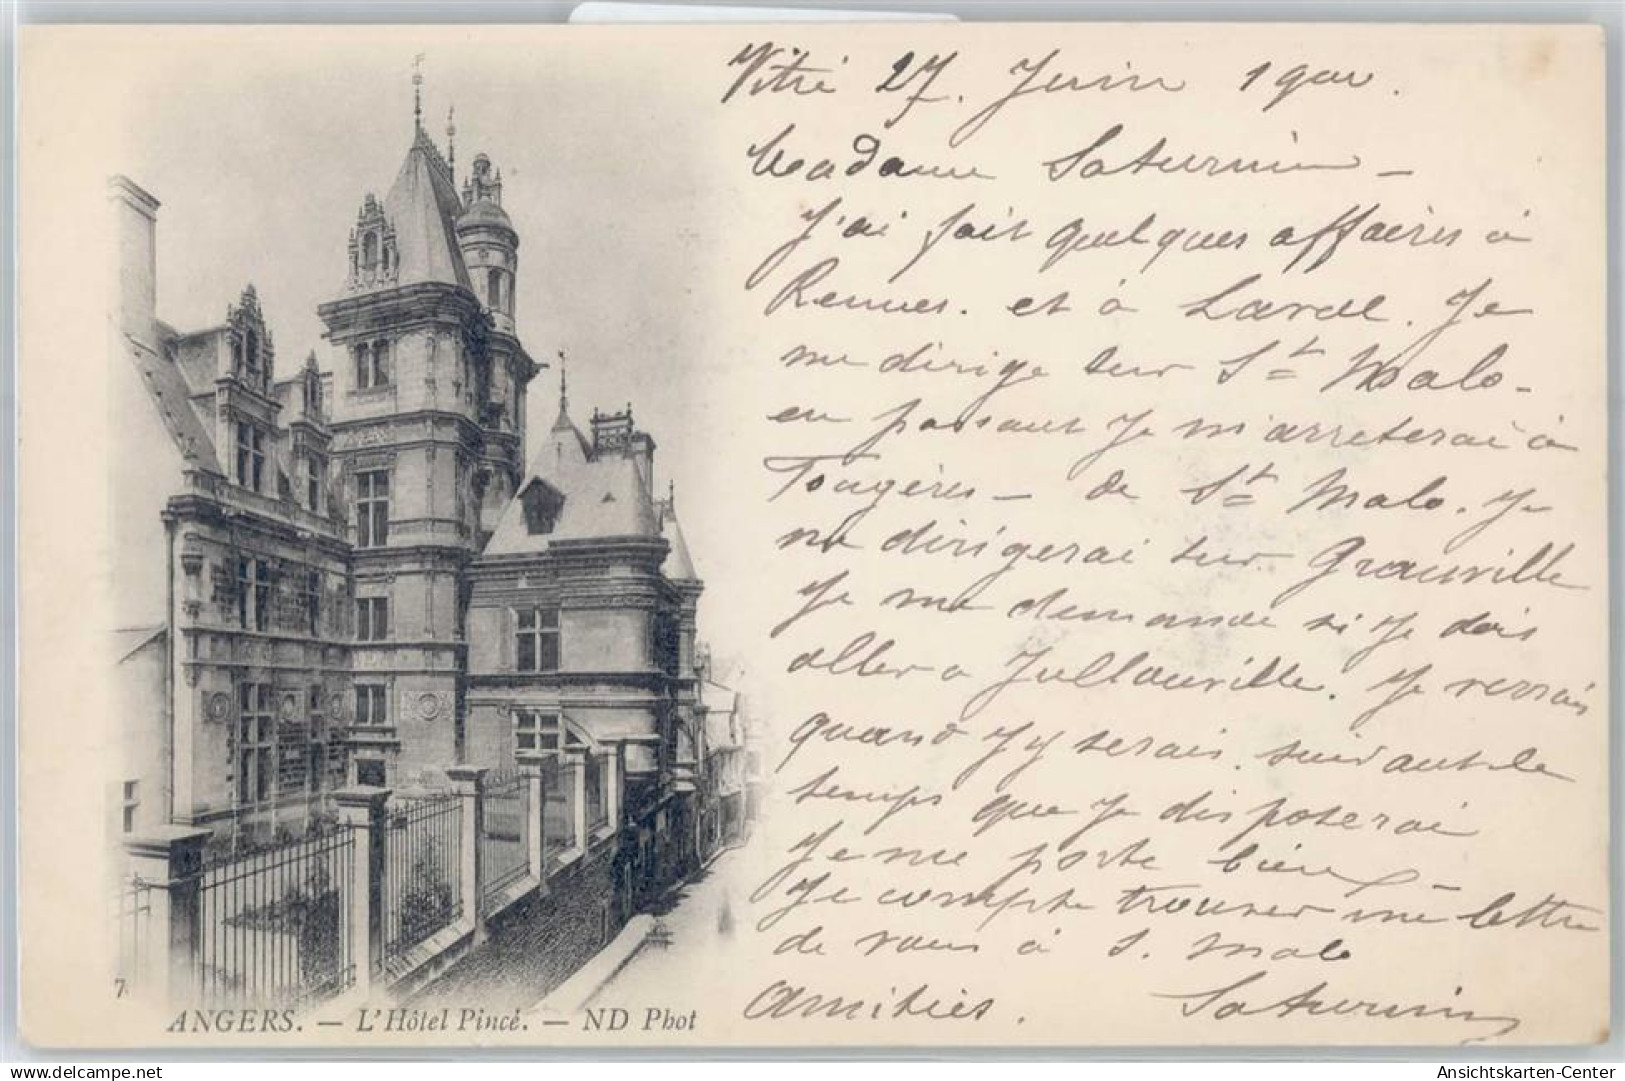 Vitré 27. Juin 1900.
Madame Saturnin —
J'ai fait quelques affaires à
Rennes. et à Laval. Je
me dirige sur St Malo -
en passant je m'arreterai à
Fougères — de St Malo. je
me dirigerai sur Granville
Je me demande si je dois
aller a Jullouville. Je verrai
quand j'y serai, suivant le
temps que je disposerai
Je me porte bien —
Je compte trouver une lettre
de vous à S. Malo
Amitiés. Saturnin
7.
ANGERS. — L'Hôtel Pincé. — ND Phot
www.delcampe.net
Ansichtskarten-Center